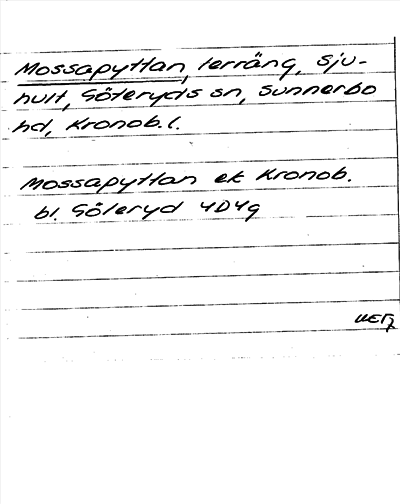 Mossapyttan, terräng, Sju-
hult, Göteryds sn, Sunnerbo
hd, Kronob. l.
Mossapyttan ek Kronob.
bl. Göteryd 4D4g